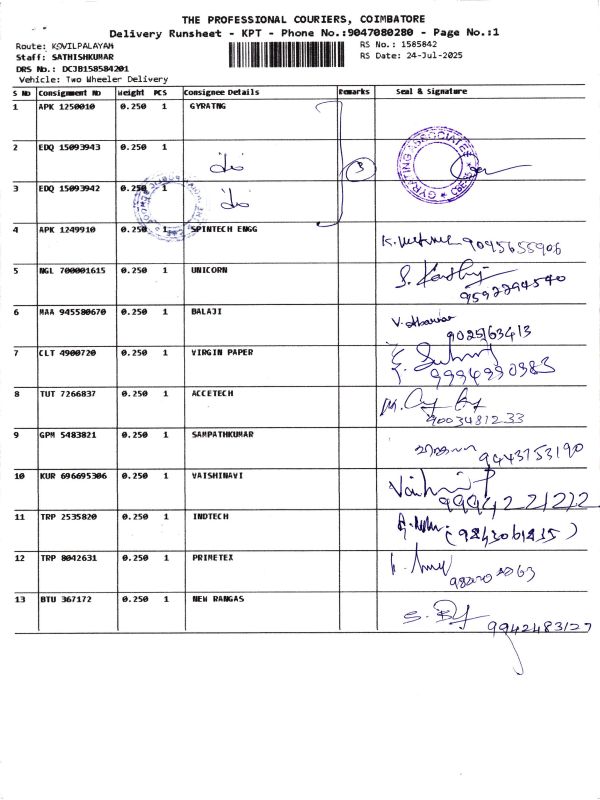 THE PROFESSIONAL COURIERS, COIMBATORE
Delivery Runsheet - KPT - Phone No.:9047080280 - Page No.:1
Route: KOVILPALAYAM
RS No.: 1585842
Staff: SATHISHKUMAR
RS Date: 24-Jul-2025
DRS No.: DCJB158584201
Vehicle: Two Wheeler Delivery
S No Consignment No Weight PCS Consignee Details Remarks Seal & Signature
1 APK 1250010 0.250 1 GYRATNG
2 EDQ 15093943 0.250 1
3
GYRATING ASSOCIATES
3 EDQ 15093942 0.250 1
4 APK 1249910 0.250 1 SPINTECH ENGG
9095655906
5 NGL 700001615 0.250 1 UNICORN
9592294540
6 MAA 945580670 0.250 1 BALAJI
9025163413
7 CLT 4900720 0.250 1 VIRGIN PAPER
9994990983
8 TUT 7266837 0.250 1 ACCETECH
9003481233
9 GPM 5483821 0.250 1 SAMPATHKUMAR
9443753190
10 KUR 696695306 0.250 1 VAISHINAVI
9994221212
11 TRP 2535820 0.250 1 INDTECH
(9843061835)
12 TRP 8042631 0.250 1 PRIMETEX
13 BTU 367172 0.250 1 NEW RANGAS
9942483127